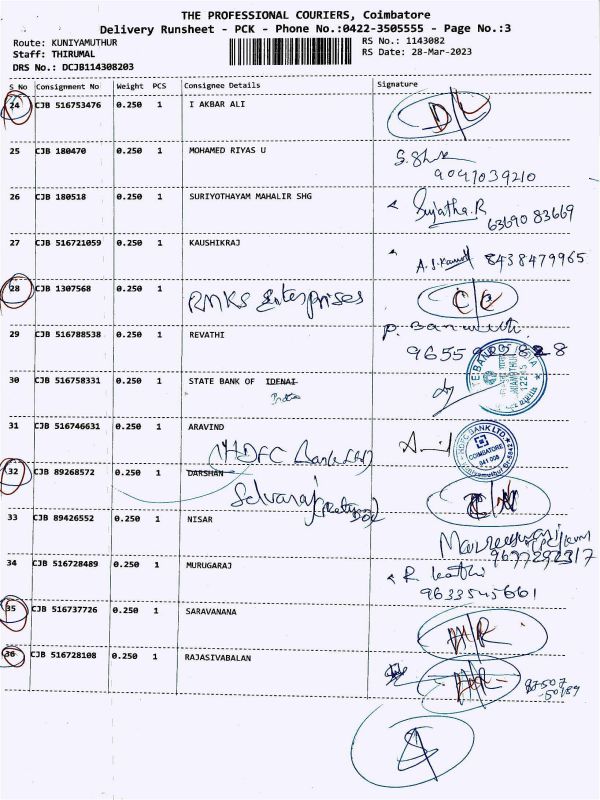 THE PROFESSIONAL COURIERS, Coimbatore
Delivery Runsheet - PCK - Phone No.:0422-3505555 - Page No.:3
Route: KUNIYAMUTHUR RS No.: 1143082
Staff: THIRUMAL RS Date: 28-Mar-2023
DRS No.: DCJB114308203
S No Consignment No Weight PCS Consignee Details Signature
24 CJB 516753476 0.250 1 I AKBAR ALI D/L
25 CJB 180470 0.250 1 MOHAMED RIYAS U
9047039210
26 CJB 180518 0.250 1 SURIYOTHAYAM MAHALIR SHG Sujatha.R
63690 83669
27 CJB 516721059 0.250 1 KAUSHIKRAJ 8438479965
28 CJB 1307568 0.250 1 RMKS Enterprises
29 CJB 516788538 0.250 1 REVATHI
30 CJB 516758331 0.250 1 STATE BANK OF IDENAI
India
31 CJB 516746631 0.250 1 ARAVIND
HDFC Bank Ltd
HDFC BANK LTD.
COIMBATORE
641 008
32 CJB 89268572 0.250 1 DARSHAN
Selvaraj
33 CJB 89426552 0.250 1 NISAR
9697292317
34 CJB 516728489 0.250 1 MURUGARAJ
9633545661
35 CJB 516737726 0.250 1 SARAVANANA
36 CJB 516728108 0.250 1 RAJASIVABALAN